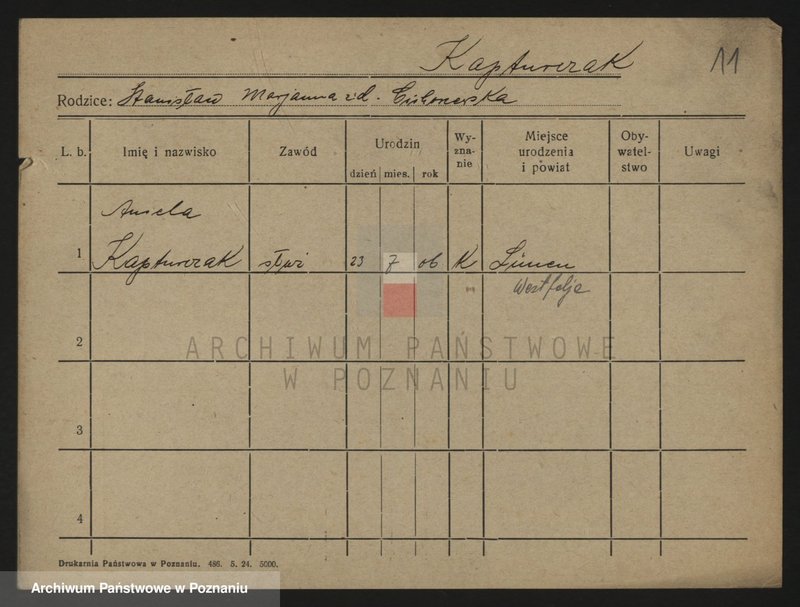 Kapturczak
11
Rodzice: Stanisław Marjanna zd.
L. b.
Imię i nazwisko
Zawód
Urodzin
dzień mies. rok
Wy-
zna-
nie
Miejsce
urodzenia
i powiat
Oby-
watel-
stwo
Uwagi
Aniela
1 Kapturczak służ 23 7 06 K Lünen
Westfalja
2
3
4
ARCHIWUM PAŃSTWOWE
W POZNANIU
Drukarnia Państwowa w Poznaniu. 486. 5. 24. 5000.
Archiwum Państwowe w Poznaniu